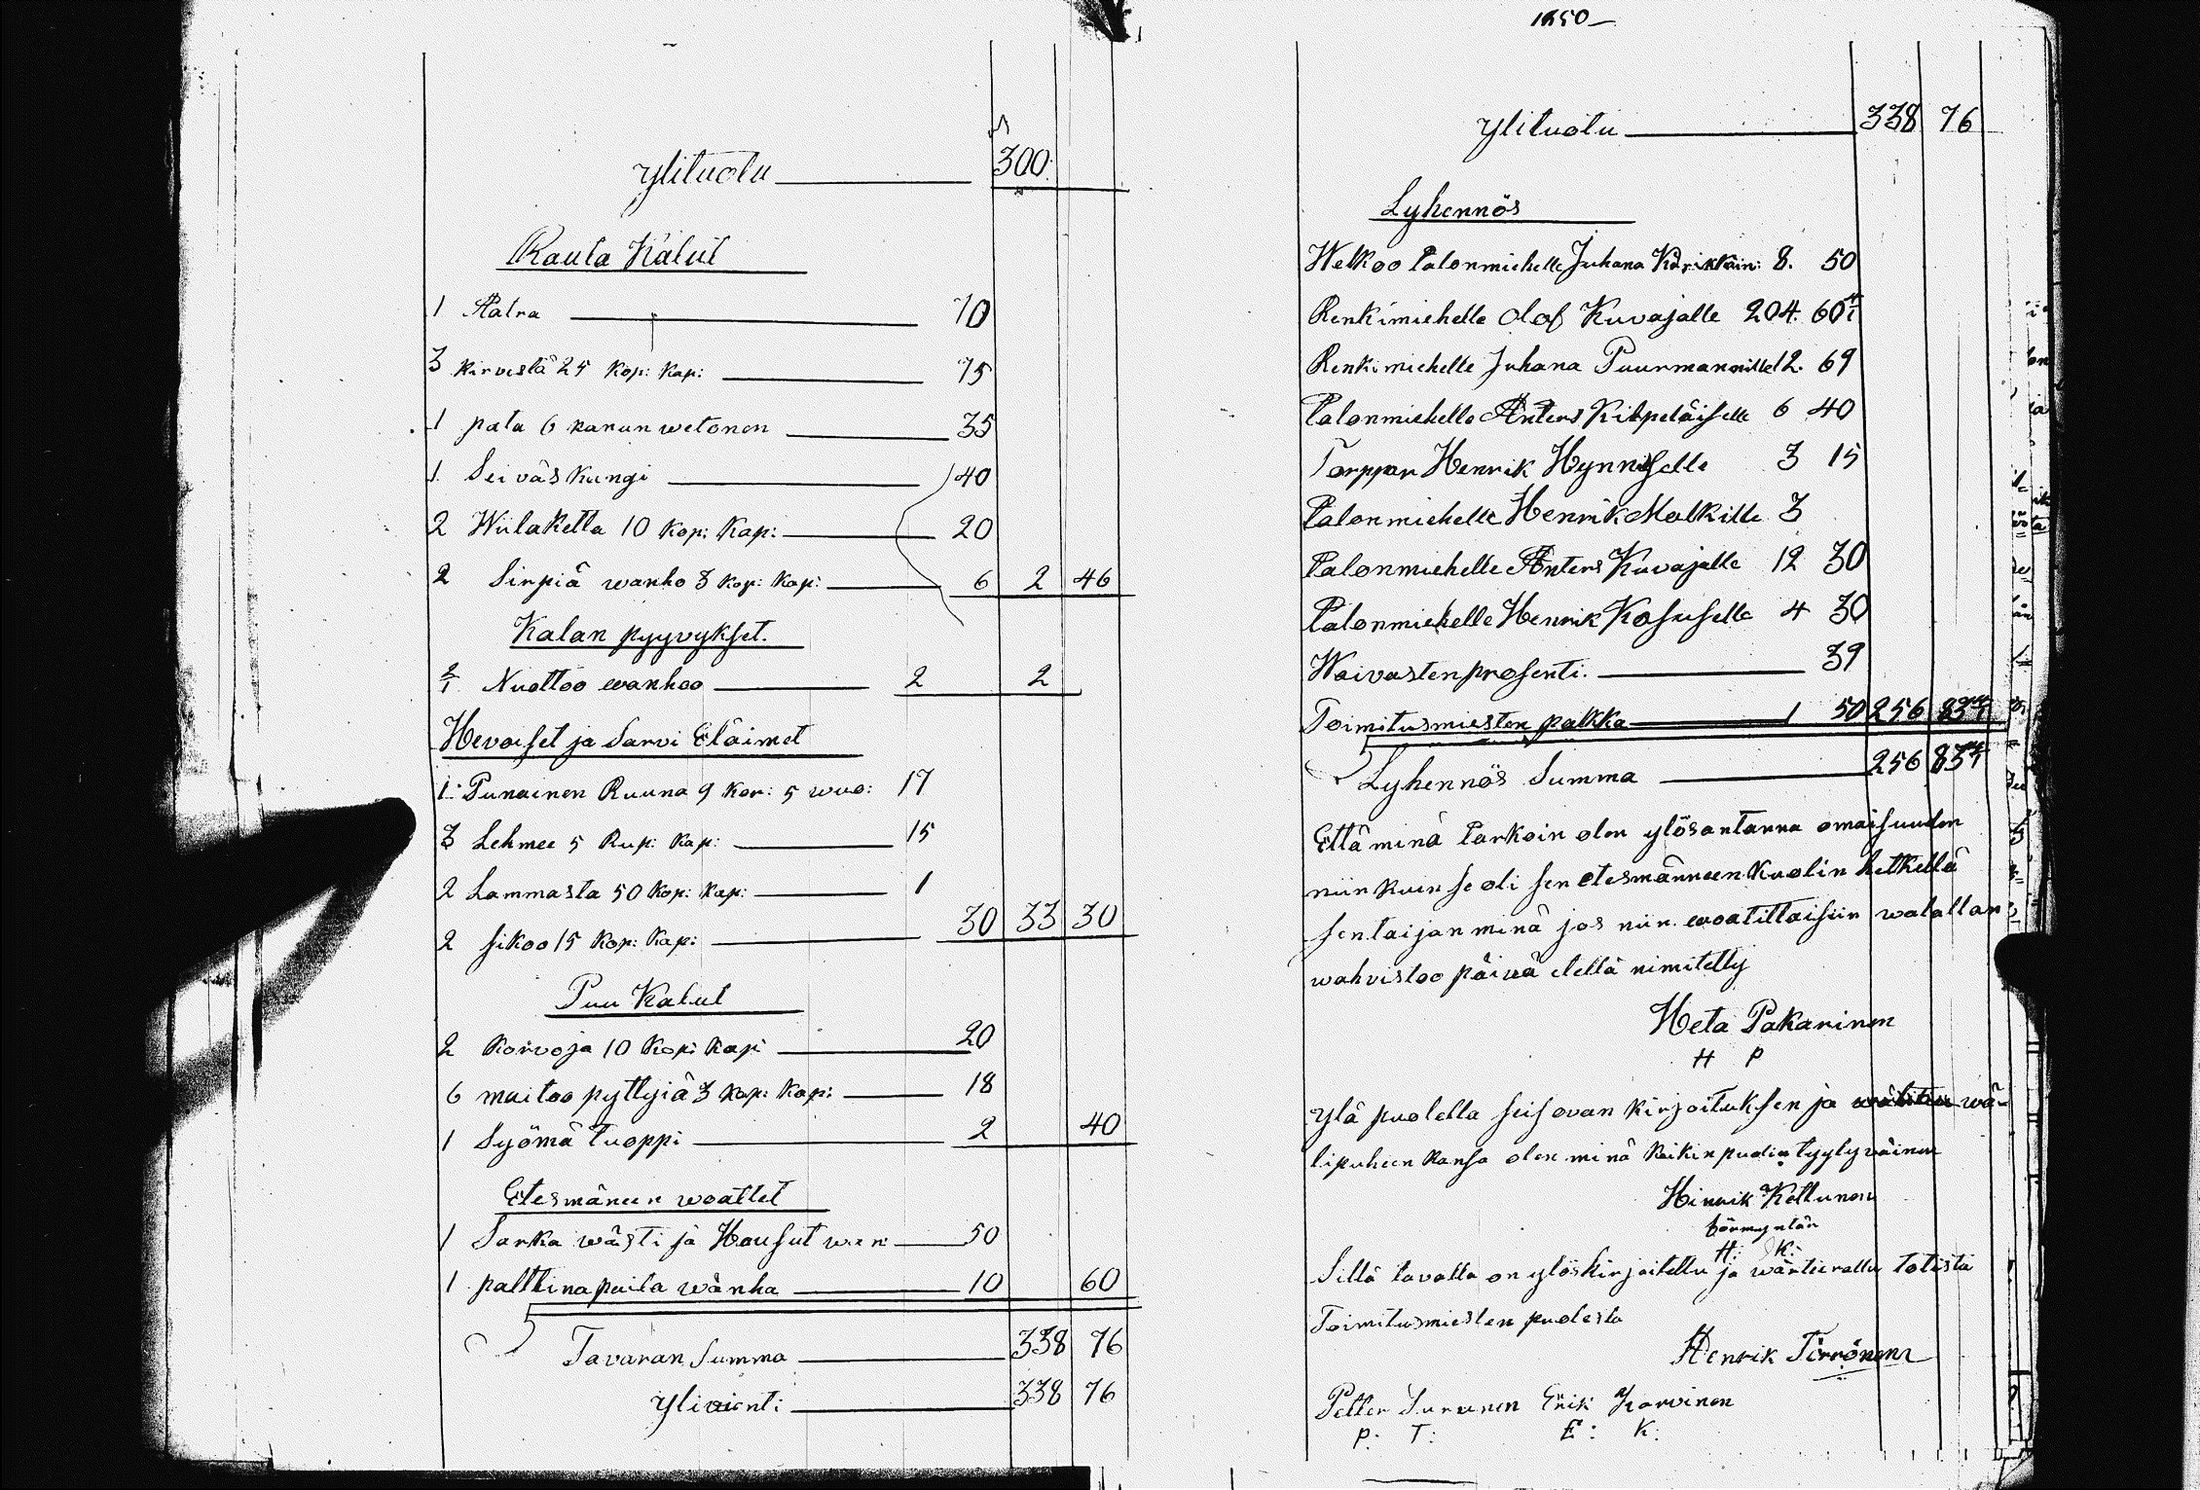 Ylituotu 300
Rauta Kalut
1 Aatra 70
3 kirvestä 25 kop: kap: 75
1 pata 6 kanun wetonen 35
1. Seiväs kangi 40
2 Wiilaketta 10 kop: kap: 20
2 Sirpiä wanho 3 kop: kap: 6 2 46
Kalan pyyvykset.
Nuottoo wanhoo 2 2
Hevoiset ja Sarvi Eläimet
1 Punainen Ruuna 9 kor: 5 wuo: 17
3 Lehmee 5 Rup: kap: 15
2 Lammasta 50 kop: kap: 1
2 sikoo 15 kop: kap: 30 33 30
Puu Kalut
2 korvoja 10 kop: kap: 20
6 maitoo pyttyiä 3 kop: kap: 18
1 Syömä tuoppi 2 40
Etesmäneen woattet
1 Sarka wästi ja Housut wan: 50
1 palttina paita wanha 10 60
Tavaran Summa 338 76
Ylivienti 338 76
1850
Ylituotu 338 76
Lyhennös
Welkoo talonmiehelle Juhana 8. 50
Renkimiehelle Olof Kuvajalle 204. 60
Renkimiehelle Juhana Puurmannille 12. 69
Talonmiehelle Anters Kilpeläiselle 6 40
Torppar Henrik Hynniselle 3 15
Talonmiehelle Henrik Malkille 3
Talonmiehelle Anters Kuvajalle 12 30
Talonmiehelle Henrik Kosuselle 4 30
Waivastenprosenti. 39
Toimitusmiesten palkka 1 50 256 83
Lyhennös Summa 256 83
Että minä tarkoin olen ylösantanna omaisuuden
niinkuin se oli sen etesmänneen kuolin hetkellä
sentaijan minä jos niin woatittaisiin walallan
wahvistoo päivä ellellä nimitetty
Heta Pakarinen
H P
Ylä puolella seisovan kirjoituksen ja wä-
lipuheen kansa olen minä kaikin puolin tyytyväinen
Hinrik Kettunen
förmyntär
H: K:
Sillä tavalla on ylöskirjoitettu ja wärtierattu totista
Toimitusmiesten puolesta
Henrik Törrönen
Petter Turunen Erik Karvinen
P: T: E: K: